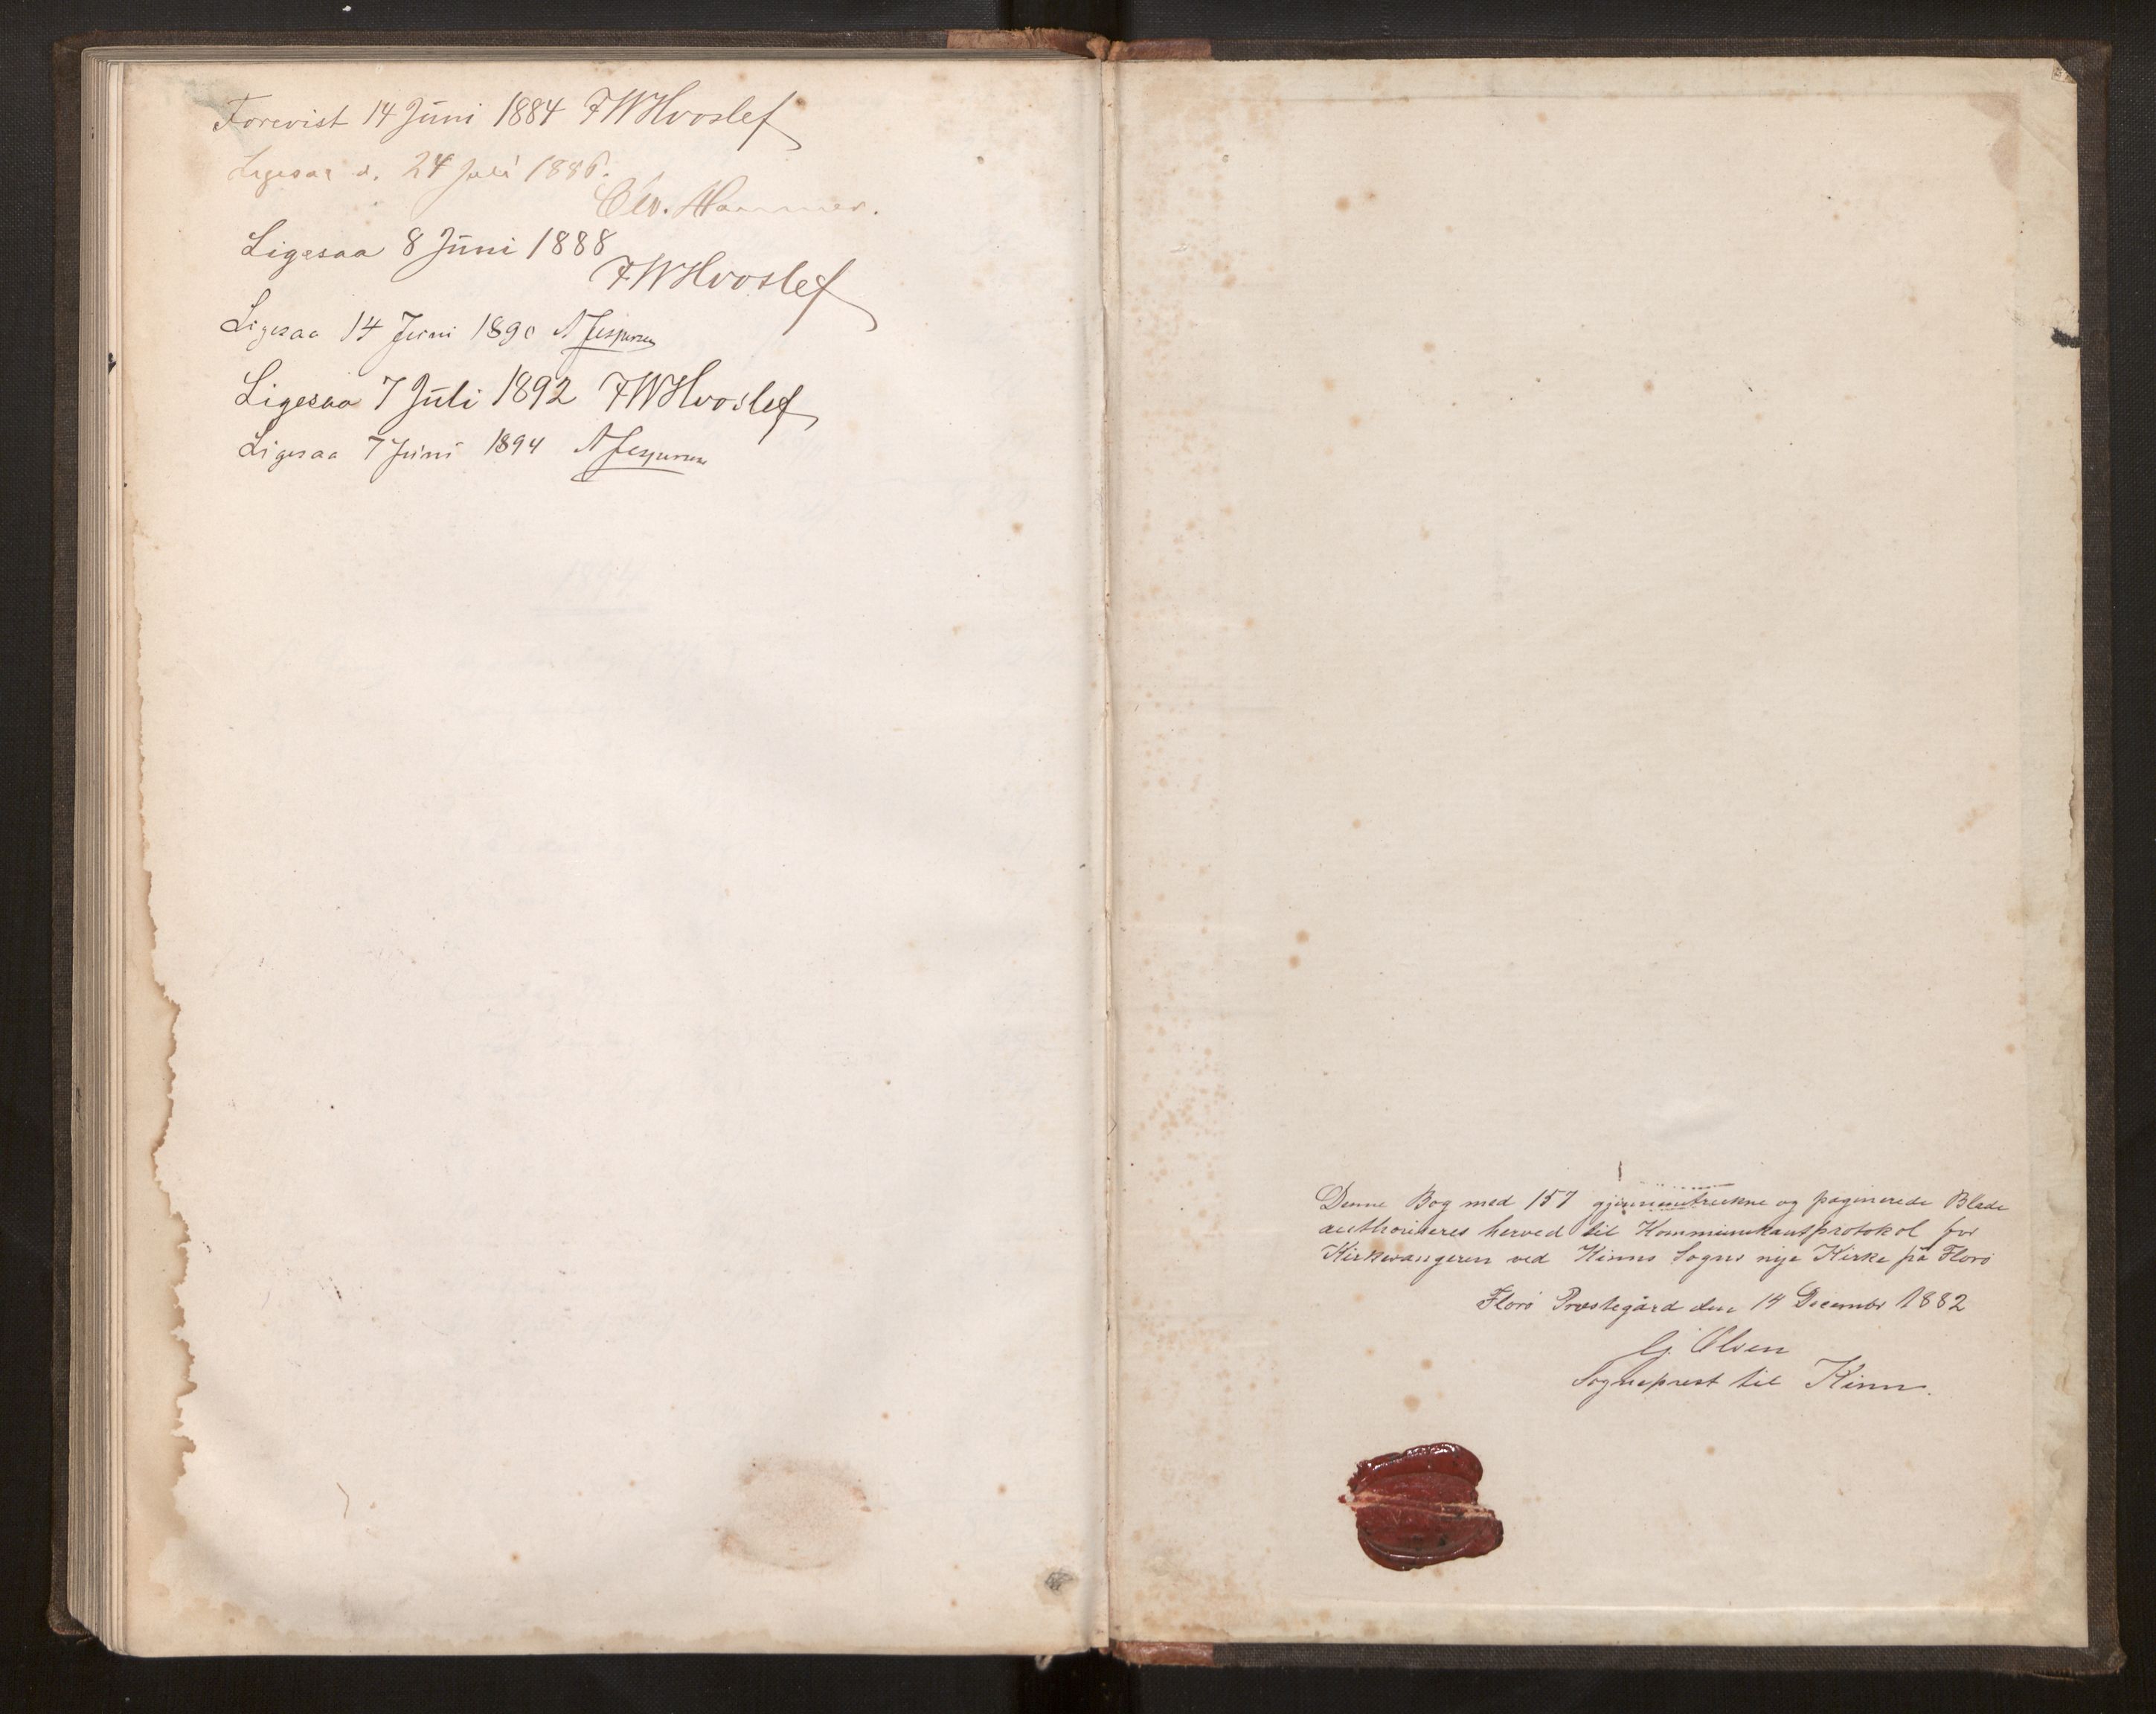 Forevist 14 Juni 1884 FWHvoslef
Ligesaa d. 24 Juli 1886.
Chr. Hammer.
Ligesaa 8 Juni 1888
FWHvoslef
Ligesaa 14 Juni 1890 N Jespersen
Ligesaa 7 Juli 1892 FWHvoslef
Ligesaa 7 Juni 1894 N Jespersen
Denne Bog med 157 gjennemtrukne og paginerede Blade
authoriseres herved til Kommunikantprotokol for
Kirkesangeren ved Kinns Sogns nye Kirke på Florø
Florø Præstegård den 14 Decembr 1882
Olsen
Sogneprest til Kinn.